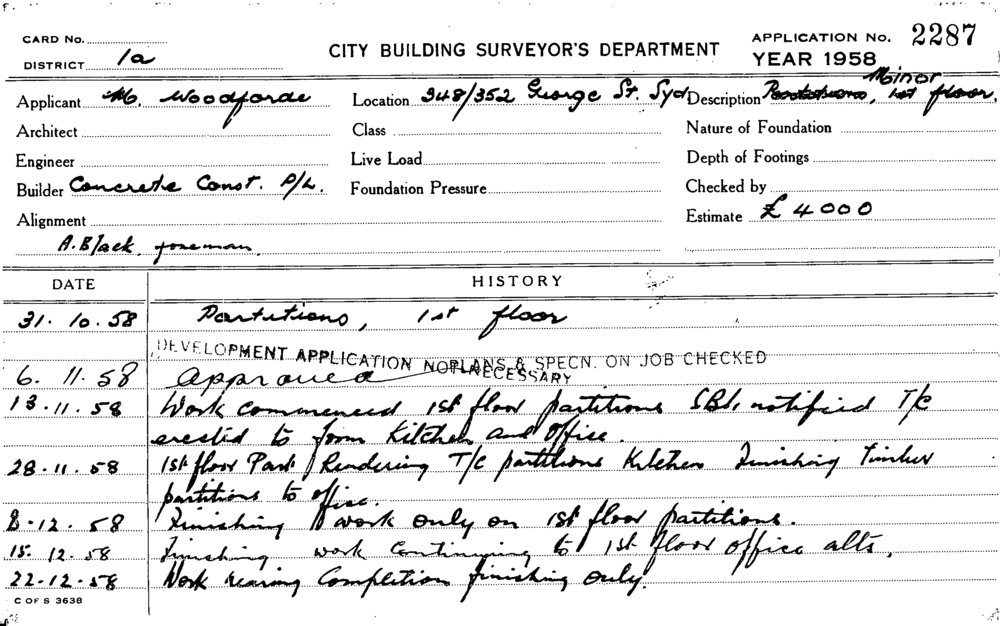 CARD No.
DISTRICT 1a
CITY BUILDING SURVEYOR'S DEPARTMENT
APPLICATION No. 2287
YEAR 1958
Applicant M. Woodforde
Location 348/352 George St. Syd
Description Partitions, Minor 1st floor.
Architect
Class
Nature of Foundation
Engineer
Live Load
Depth of Footings
Builder Concrete Const. P/L.
Foundation Pressure
Checked by
Alignment
Estimate £4000
A. Black foreman.
DATE HISTORY
31. 10. 58 Partitions, 1st floor
DEVELOPMENT APPLICATION NOT NECESSARY
PLANS & SPECN. ON JOB CHECKED
6. 11. 58 Approved
13. 11. 58 Work commenced 1st floor partitions notified T/C
erected to form Kitchen and Office.
28. 11. 58 1st floor Part Rendering T/C partitions Kitchen Finishing Timber
partitions to office.
8. 12. 58 Finishing work only on 1st floor partitions.
15. 12. 58 Finishing work Continuing to 1st floor office alts.
22. 12. 58 Work nearing Completion finishing only.
C OF S 3638